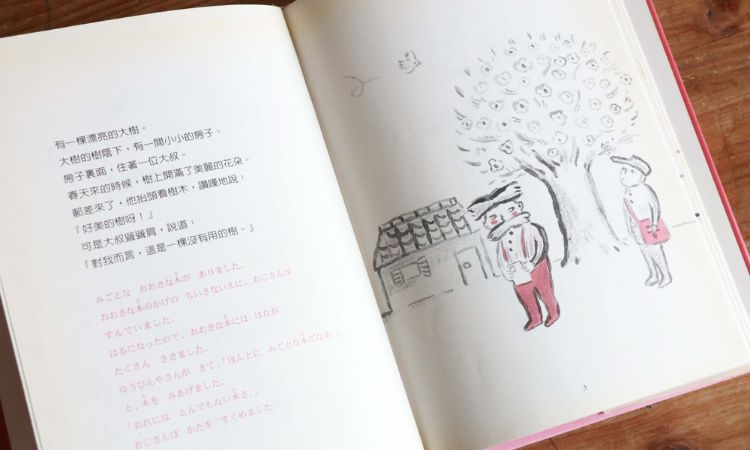 有一棵漂亮的大樹。
大樹的樹蔭下，有一間小小的房子。
房子裏面，住著一位大叔。
春天來的時候，樹上開滿了美麗的花朵。
郵差來了，他抬頭看樹木，讚嘆地說：
『好美的樹呀！』
可是大叔聳聳肩，說道：
『對我而言，這是一棵沒有用的樹。』
みごとな おおきな木が ありました。
おおきな木のかげの ちいさないえに、おじさんが
すんでいました。
はるになったので、おおきな木には はなが
たくさん さきました。
ゆうびんやさんが きて、「ほんとに みごとな木だなあ。」
と、木を みあげました。
「おれには とんでもない木さ。」
おじさんは かたを すくめました。
3